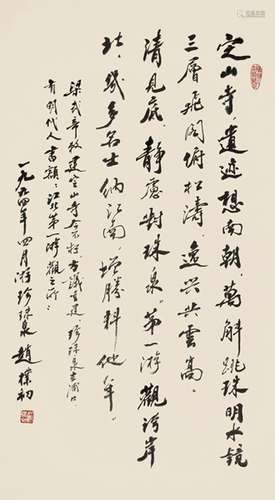 定山寺，遺迹想南朝，萬斛跳珠明水鏡
三層飛閣俯松濤，逸興共雲高。
清見底，靜慮對珠泉。第一游觀河岸
北，幾多名士納江南，增勝料他年。
梁武帝敕建定山寺今不存，方議重建，珍珠泉在浦口
有明代人書額：江北第一游觀之所。
一九九四年四月游珍珠泉 趙樸初